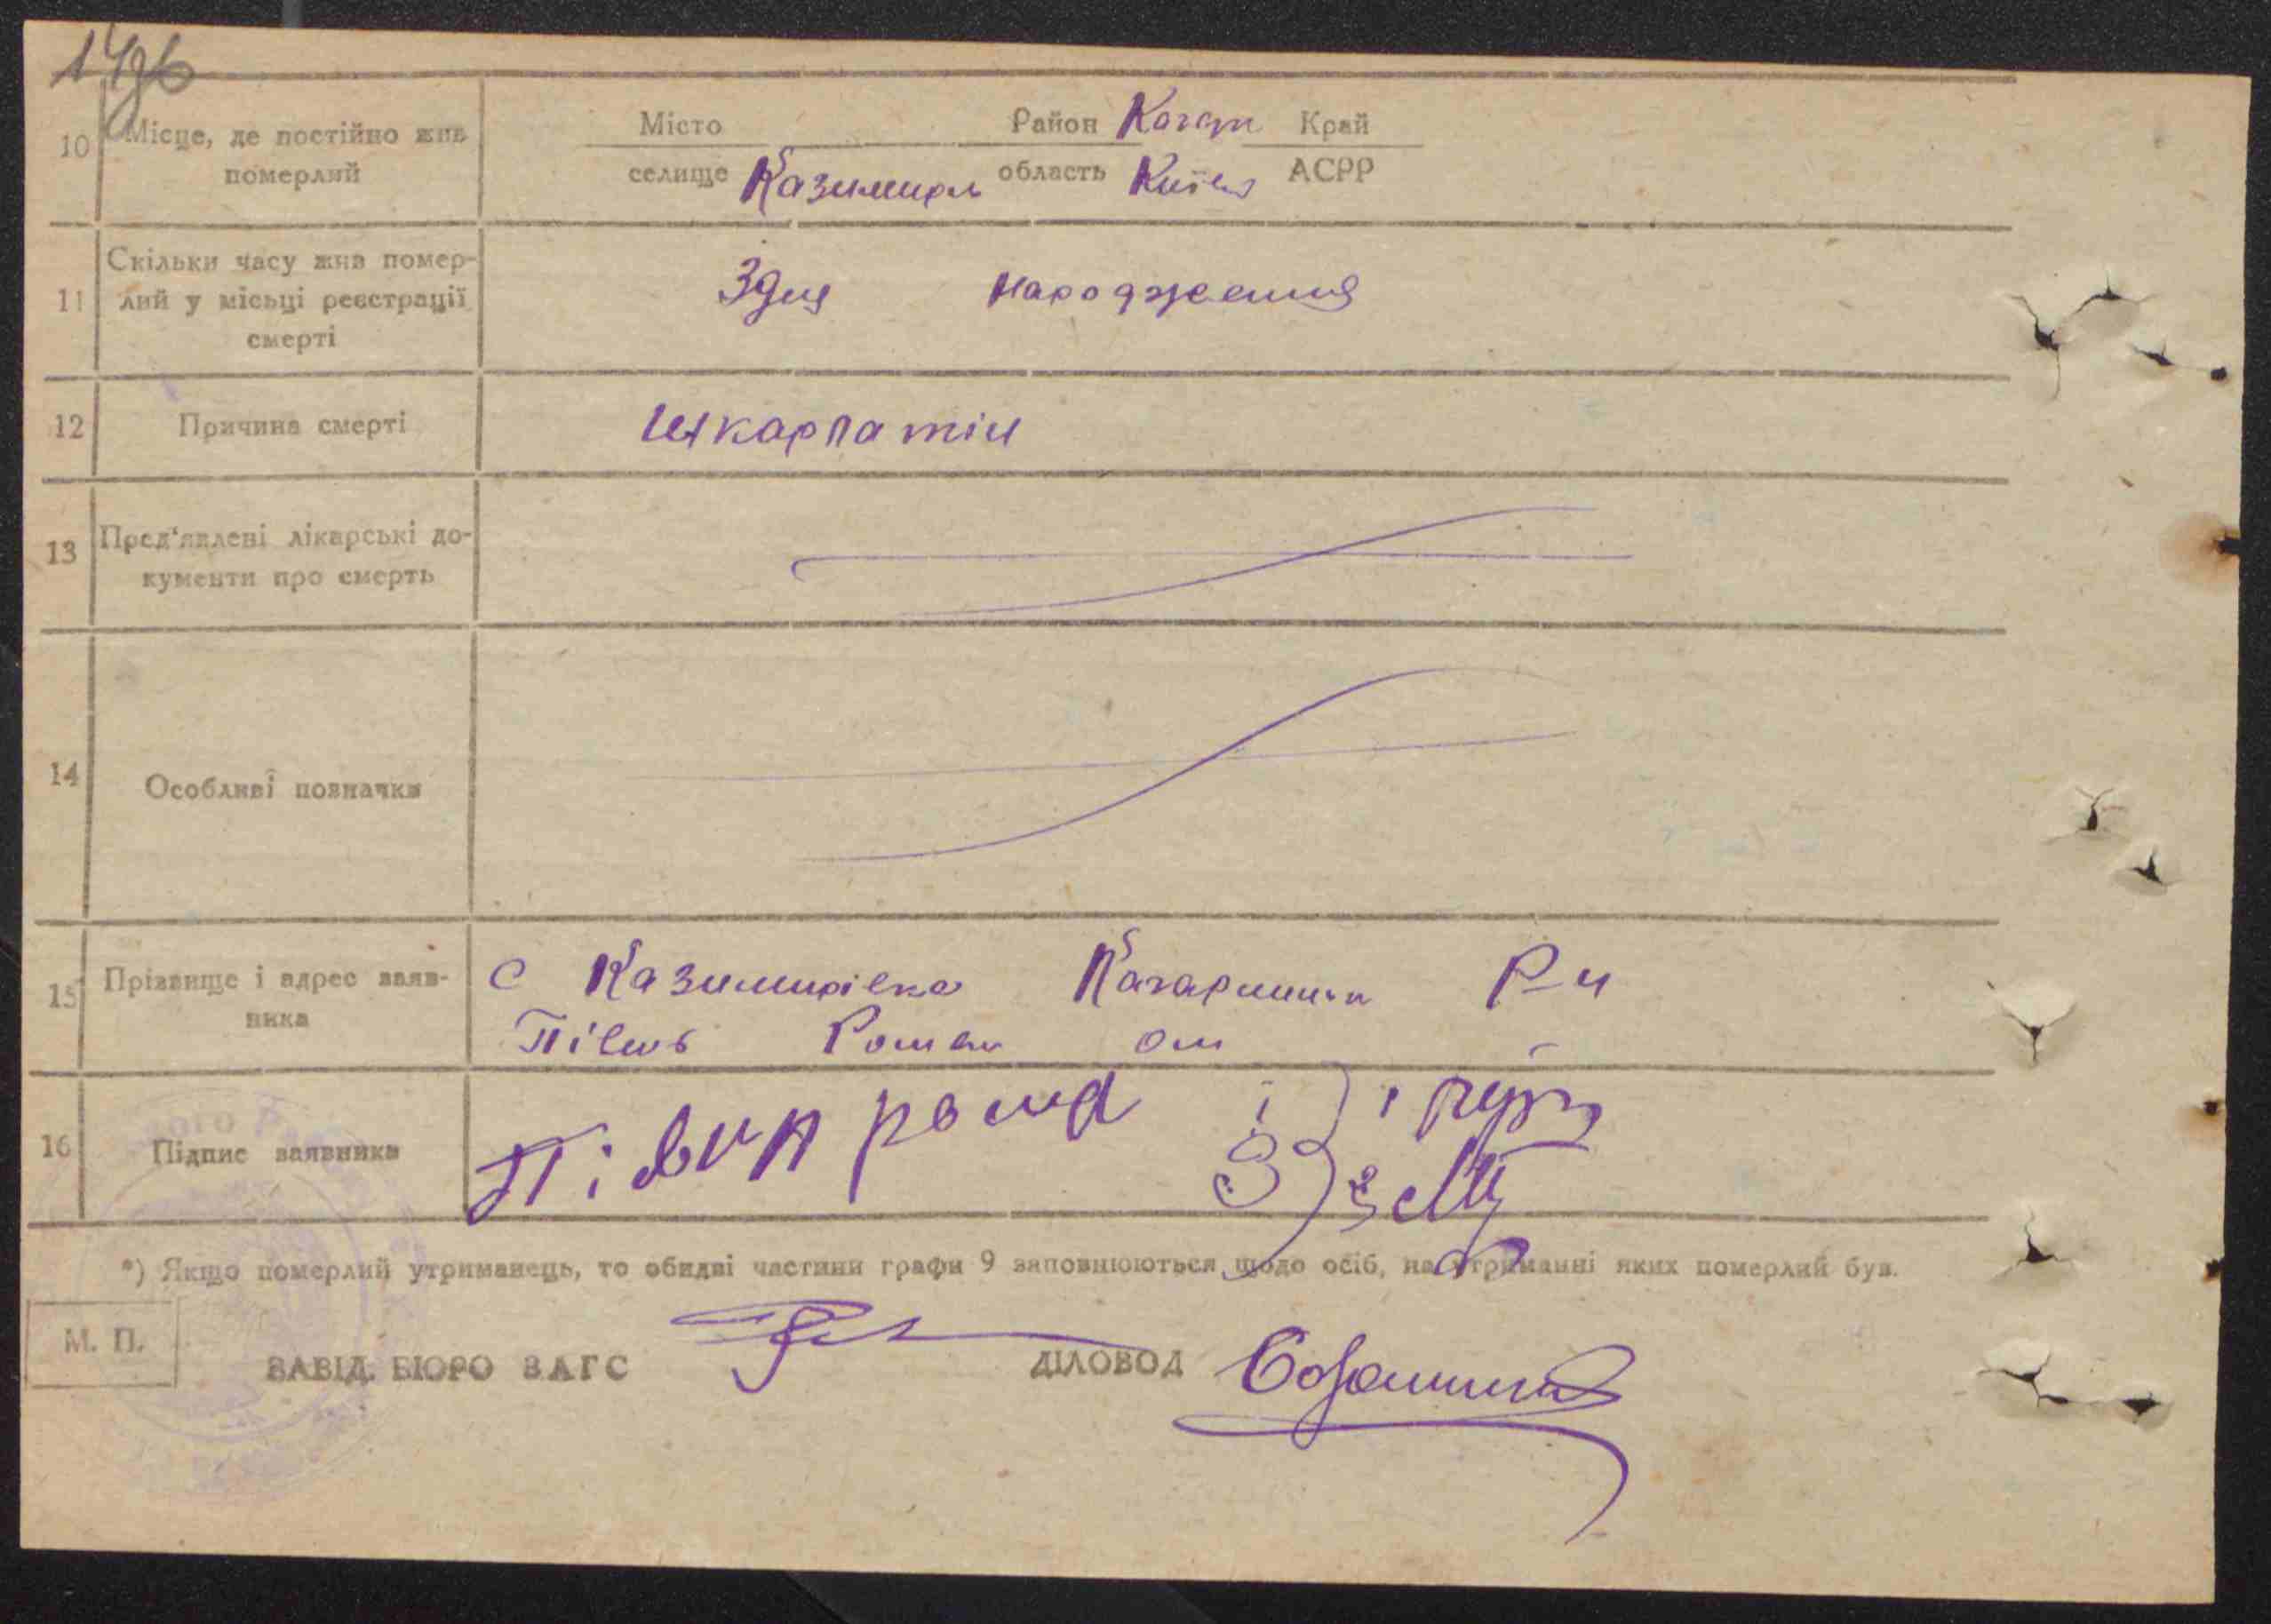 10 Місце, де постійно жив Місто Район Кагар Край
померлий селище Казимирл область Київ АСРР
Скільки часу жив помер-
11 лий у місьці реєстрації Здня народження
смерті
12 Причина смерті Шкарлатін
13 Пред'явлені лікарські до-
кументи про смерть
14 Особливі повначки
15 Прізвище і адрес заяв- с Казимирівка Кагарлицьк Р-н
ника Півень Роман
16 Підпис заявника Півин рома
*) Якщо померлий утриманець, то обидві частини графи 9 заповнюються щодо осіб, на утриманні яких померлий був.
М. П.
ЗАВІД. БЮРО ЗАГС ДІЛОВОД